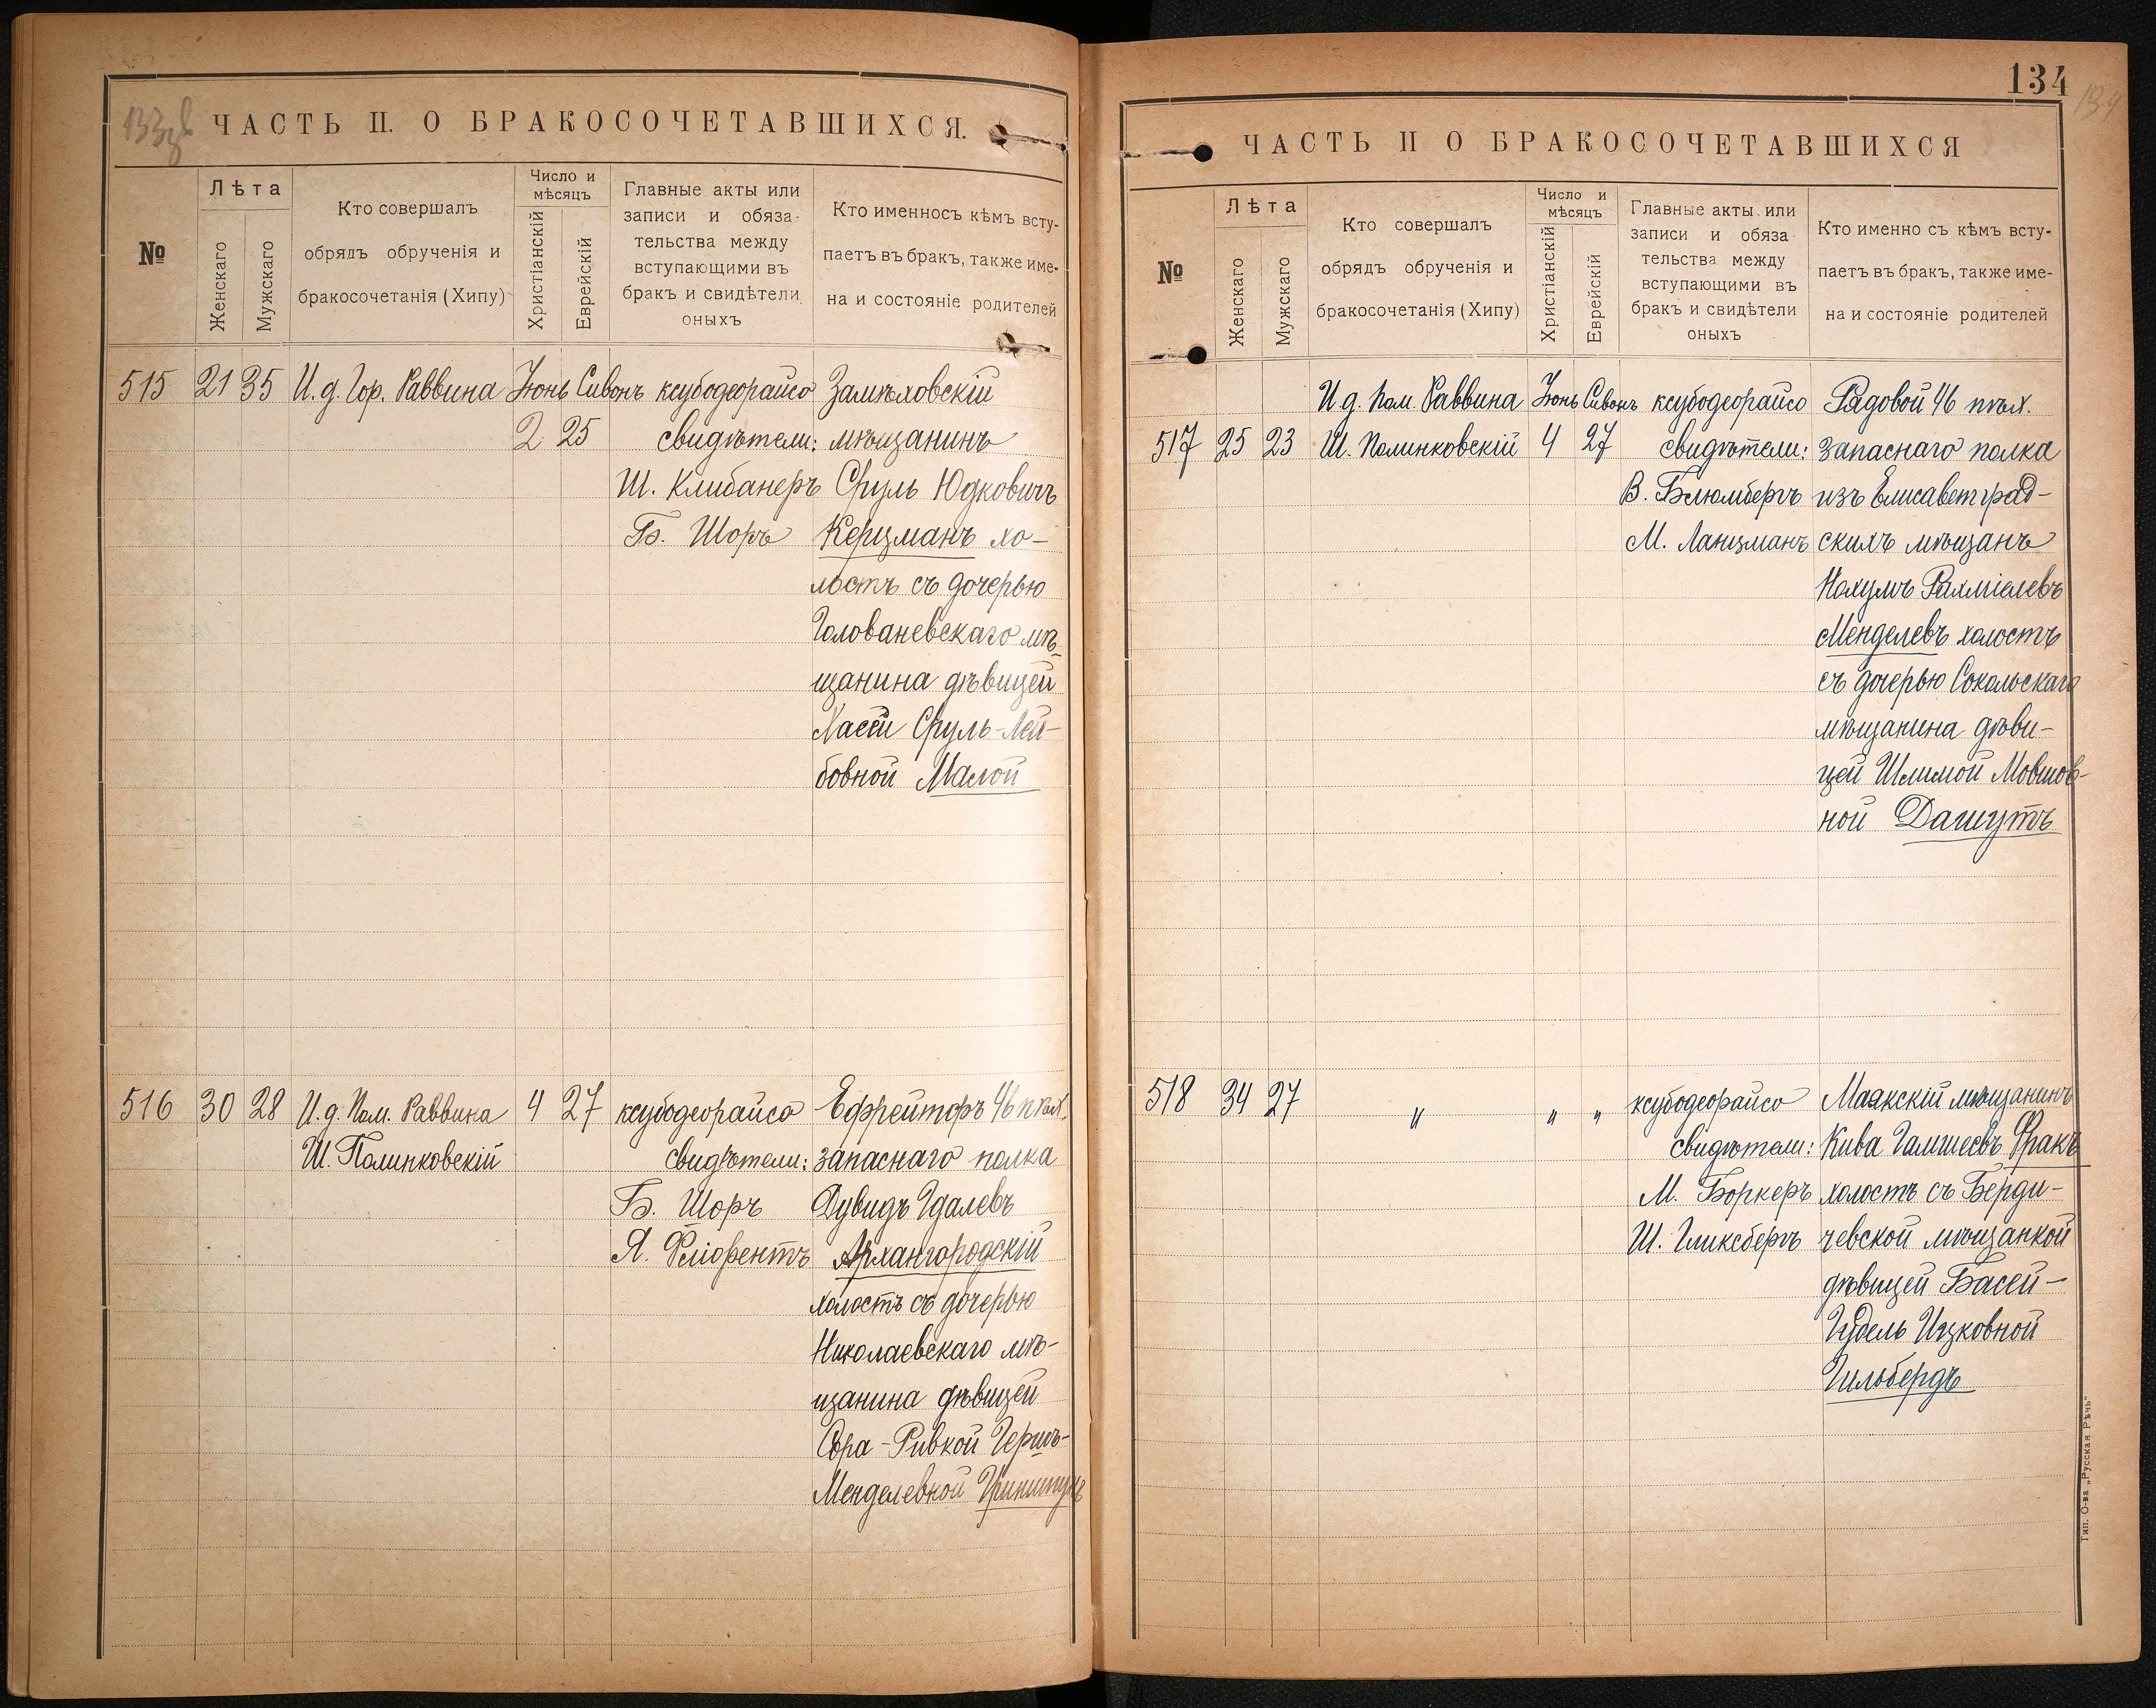 133 об
ЧАСТЬ II. О БРАКОСОЧЕТАВШИХСЯ.
№
Лѣта
Женскаго
Мужскаго
Кто совершалъ
обрядъ обрученія и
бракосочетанія (Хипу)
Число и
мѣсяцъ
Христіанскій
Еврейскій
Главные акты или
записи и обяза-
тельства между
вступающими въ
бракъ и свидѣтели
оныхъ
Кто именносъ кѣмъ всту-
паетъ въ бракъ, также име-
на и состояніе родителей
515 21 35 И. д. Гор. Раввина Іюнь Сивонъ ксубодеорайсо Замѣховскій
2 25 свидѣтели: мѣщанинъ
Ш. Клибанеръ Сруль Юдковичъ
Б. Шоръ Керцманъ хо-
лостъ съ дочерью
Голованевскаго мѣ-
щанина дѣвицей
Хасей Сруль-Лей-
бовной Малой
516 30 28 И. д. Пом. Раввина 4 27 ксубодеорайсо Ефрейторъ 46 пѣх.
Ш. Полинковскій свидѣтели: запаснаго полка
Б. Шоръ Дувидъ Идалевъ
Я. Архангородскій
холостъ съ дочерью
Николаевскаго мѣ-
щанина дѣвицей
Сора-Ривкой Гершъ-
Менделевной Гриншпунъ
134
134
ЧАСТЬ II О БРАКОСОЧЕТАВШИХСЯ
№
Лѣта
Женскаго
Мужскаго
Кто совершалъ
обрядъ обрученія и
бракосочетанія (Хипу)
Число и
мѣсяцъ
Христіанскій
Еврейскій
Главные акты или
записи и обяза
тельства между
вступающими въ
бракъ и свидѣтели
оныхъ
Кто именно съ кѣмъ всту-
паетъ въ бракъ, также име-
на и состояніе родителей
И. д. Пом. Раввина Іюнь Сивонъ ксубодеорайсо Рядовой 46 пѣх.
517 25 23 Ш. Полинковскій 4 27 свидѣтели: запаснаго полка
В. Блюмбергъ изъ Елисаветград-
М. Ланцманъ скихъ мѣщанъ
Нохумъ Рахміелевъ
Менделевъ холостъ
съ дочерью Сокольскаго
мѣщанина дѣви-
цей Шлимой Мовшов-
ной Дашутъ
518 34 27 " " " ксубодеорайсо Маякскій мѣщанинъ
свидѣтели: Кива Гамшеевъ Фракъ
М. Боркеръ холостъ съ Берди-
Ш. Гликсбергъ чевской мѣщанкой
дѣвицей Басей-
Гудель Ицковной
Гильбердъ
Тип. О-ва „Русская Рѣчь"